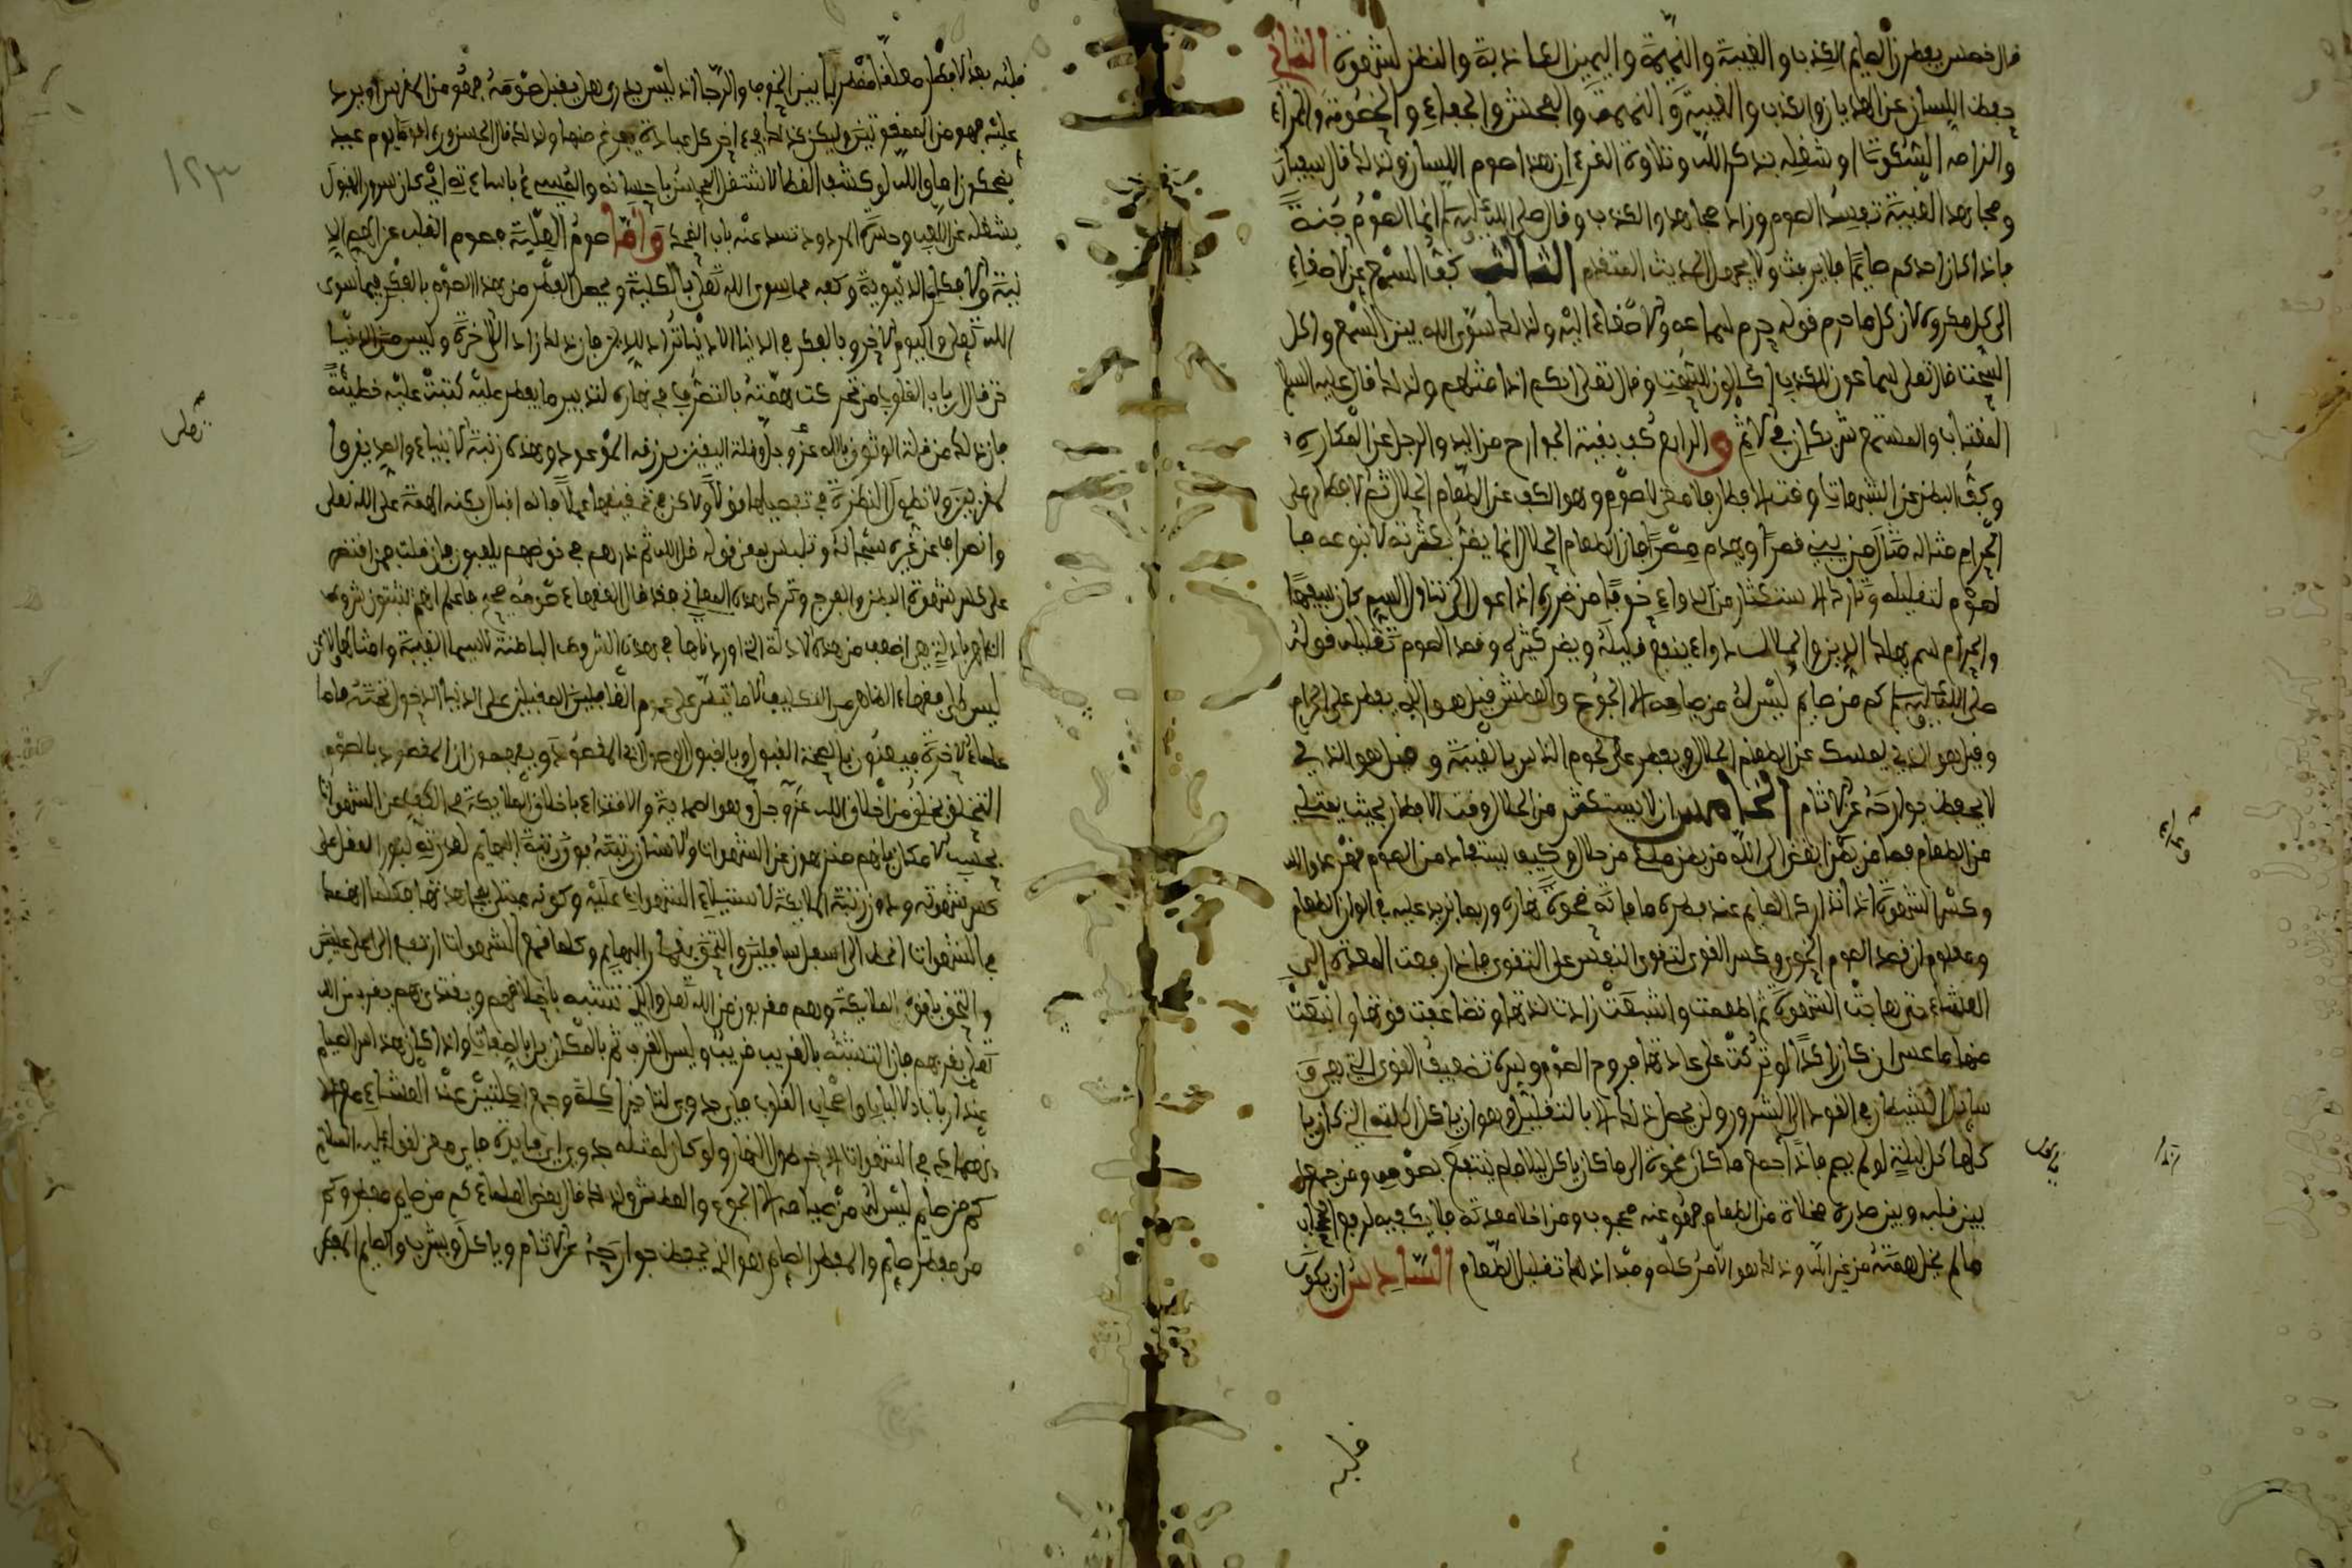 قال خمس يفطرن الصايم الكذب والغيبة والنميمة واليمين الكاذبة والنظر لشهوة الثاني
حفظ اللسان عن الهذيان والكذب والغيبة والنميمة والفحش والجفاء والخصومة والمراء
والزامه السكوت وشغله بذكر الله وتلاوة القرءان هذا صوم اللسان ولذلك قال سفيان
ومجاهد الغيبة تفسد الصوم وزاد مجاهد والكذب وقال صلى الله عليه وسلم انما الصوم جنة
فاذا كان احدكم صايما فلا يرفث ولا يجهل الحديث المتقدم الثالث كف السمع عن الاصغاء
الى كل مكروه لان كل ما حرم قوله حرم سماعه والاصغاء اليه ولذلك سوى الله بين السمع واكل
السحت فقال تعلى سماعون للكذب اكالون للسحت وقال تعلى انكم اذا مثلهم ولذلك قال عليه السلم
المغتاب والمستمع شريكان في الاثم والرابع كف بقية الجوارح من اليد والرجل عن المكاره
وكف البطن عن الشبهات وقت الافطار فلا معنى للصوم وهو الكف عن الطعام الحلال ثم الافطار على
الحرام مثاله مثال من يبني قصرا ويهدم مصرا فان الطعام الحلال انما يضر بكثرته لا بنوعه فا
لصوم لتقليله وتارك الاستكثار من الدواء خوفا من ضرره اذا عدل الى تناول السم كان سفيها
والحرام سم مهلك الدين والحلال دواء ينفع قليله ويضر كثيره وقصد الصوم تقليله قوله
صلى الله عليه وسلم كم من صايم ليس له من صيامه الا الجوع والعطش فقيل هو الذي يفطر على الحرام
وقيل هو الذي يمسك عن الطعام الحلال ويفطر على لحوم الناس بالغيبة وقيل هو الذي
لا يحفظ جوارحه عن الاثام الخامس ان لا يستكثر من الحلال وقت الافطار بحيث يمتلي
من الطعام فما من بطن ابغض الى الله من بطن مليء من حلال وكيف يستفاد من الصوم قهر عدو الله
وكسر الشهوة اذا تدارك الصايم عند فطره ما فاته ضحوة نهاره وربما يزيد عليه في الوان الطعام
ومعلوم ان قصد الصوم الخوى وكسر الهوى لتقوى النفس على التقوى فاذا دفعت المعدة الى
العشاء حتى هاجت الشهوة ثم اطعمت واشبعت زادت لذتها وتضاعفت قوتها وانبعثت
منها ما عسى ان كان راكدا لو تركت على عادتها فروح الصوم وسره تضعيف القوى التي هي و
سايل الشيطان في القود الى الشرور ولن يحصل ذلك الا بالتقليل وهو ان ياكل اكلته التي كان يا
كلها كل ليلة لو لم يصم فاذا جمع ما كان ضحوة الى ما كان ياكل ليلا فلم ينتفع بصومه ومن جعل
بين قلبه وبين صدره مخلاة من الطعام فهو عنه محجوب ومن اخلا معدته فلا يكفيه لرفع الحجاب
ما لم يخل همته من غير الله وذلك هو الامر كله ومبدا ذلك تقليل الطعام السادس ان يكون
قلبه
قلبه بعد الافطار معلقا مضطربا بين الخوف والرجا اذ ليس يدري هل يقبل صومه فهو من المقربين او يرد
عليه فهو من الممقوتين وليكن كذلك في ءاخر كل عبادة يفرغ منها ولذلك قال الحسن وراى قوما يوم عيد
يضحكون اما والله لو كشف الغطا لاشتغل المحسن باحسانه والمسيء باساءته اي كان سرور القبول
يشغله عن اللعب وحسرة المردود تسد عنه باب الضحك واما صوم العلية فصوم القلب عن الهمم الد
نية والافكار الدنيوية وكفه عما سوى الله تعلى بالكلية ويحصل الفطر من هذا الصوم بالفكر فيما سوى
الله تعلى واليوم الاخر وبالفكر في الدنيا الا دنيا تراد للدين فان ذلك زاد الاخرة وليس من الدنيا
حتى قال ارباب القلوب من تحركت همته بالتصرف في نهاره لتدبير ما يفطر عليه كتبت عليه خطيئة
فان ذلك من قلة الوثوق بالله عز وجل وقلة اليقين برزقه الموعود وهذه رتبة الانبياء والصديقين وا
لمقربين ولا نطول النظرة في تفصيلها قولا ولاكن في تحقيقها عملا فانه اقبال بكنه الهمة على الله تعلى
وانصراف عن غيره سبحانه وتلبس بمعنى قوله قل الله ثم ذرهم في خوضهم يلعبون فان قلت فمن اقتصر
على كسر شهوة البطن والفرج وترك هذه المعاني فقد قال الفقهاء صومه صحيح فاعلم انهم يثبتون شروط
الظاهر بادلة هي اضعف من هذه الادلة التي اوردناها في هذه الشروط الباطنة لا سيما الغيبة وامثالها لاكن
ليس الى فقهاء الظاهر من التكليف الا ما يتيسر على عموم الغافلين المقبلين على الدنيا الدخول تحته فاما
علماء الاخرة فيعنون بالصحة القبول وبالقبول الوصول الى المقصود ويفهمون ان المقصود بالصوم
التخلق بخلق من اخلاق الله عز وجل وهو الصمدية والاقتداء باخلاق الملايكة في الكف عن الشهوات
بحسب الامكان فانهم منزهون عن الشهوات والانسان رتبته فوق رتبة البهايم لقدرته بنور العقل على
كسر شهوته ودون رتبة الملايكة لاستيلاء الشهوات عليه وكونه مبتلى بمجاهدتها فكلما انهمك
في الشهوات انحط الى اسفل سافلين والتحق بغمار البهايم وكلما قمع الشهوات ارتفع الى اعلى عليين
والتحق بافق الملايكة وهم مقربون من الله تعلى والذي يتشبه باخلاقهم ويقتدى بهم يقرب من الله
تعلى بقربهم فان التشبه بالقريب قريب وليس القرب ثم بالمكان بل بالصفات واذا كان هذا سر الصيام
عند ارباب الالباب واصحاب القلوب فاي جدوى لتاخير اكلة وجمع اكلتين عند العشاء مع الا
نهماك في الشهوات الاخر طول النهار ولو كان لمثله جدوى اي فايدة فاي معنى لقوله عليه السلام
كم من صايم ليس له من صيامه الا الجوع والعطش ولذلك قال بعض العلماء كم من صايم مفطر وكم
من مفطر صايم والمفطر الصايم هو الذي يحفظ جوارحه عن الاثام وياكل ويشرب والصايم المفطر
١٢٣
تعلى